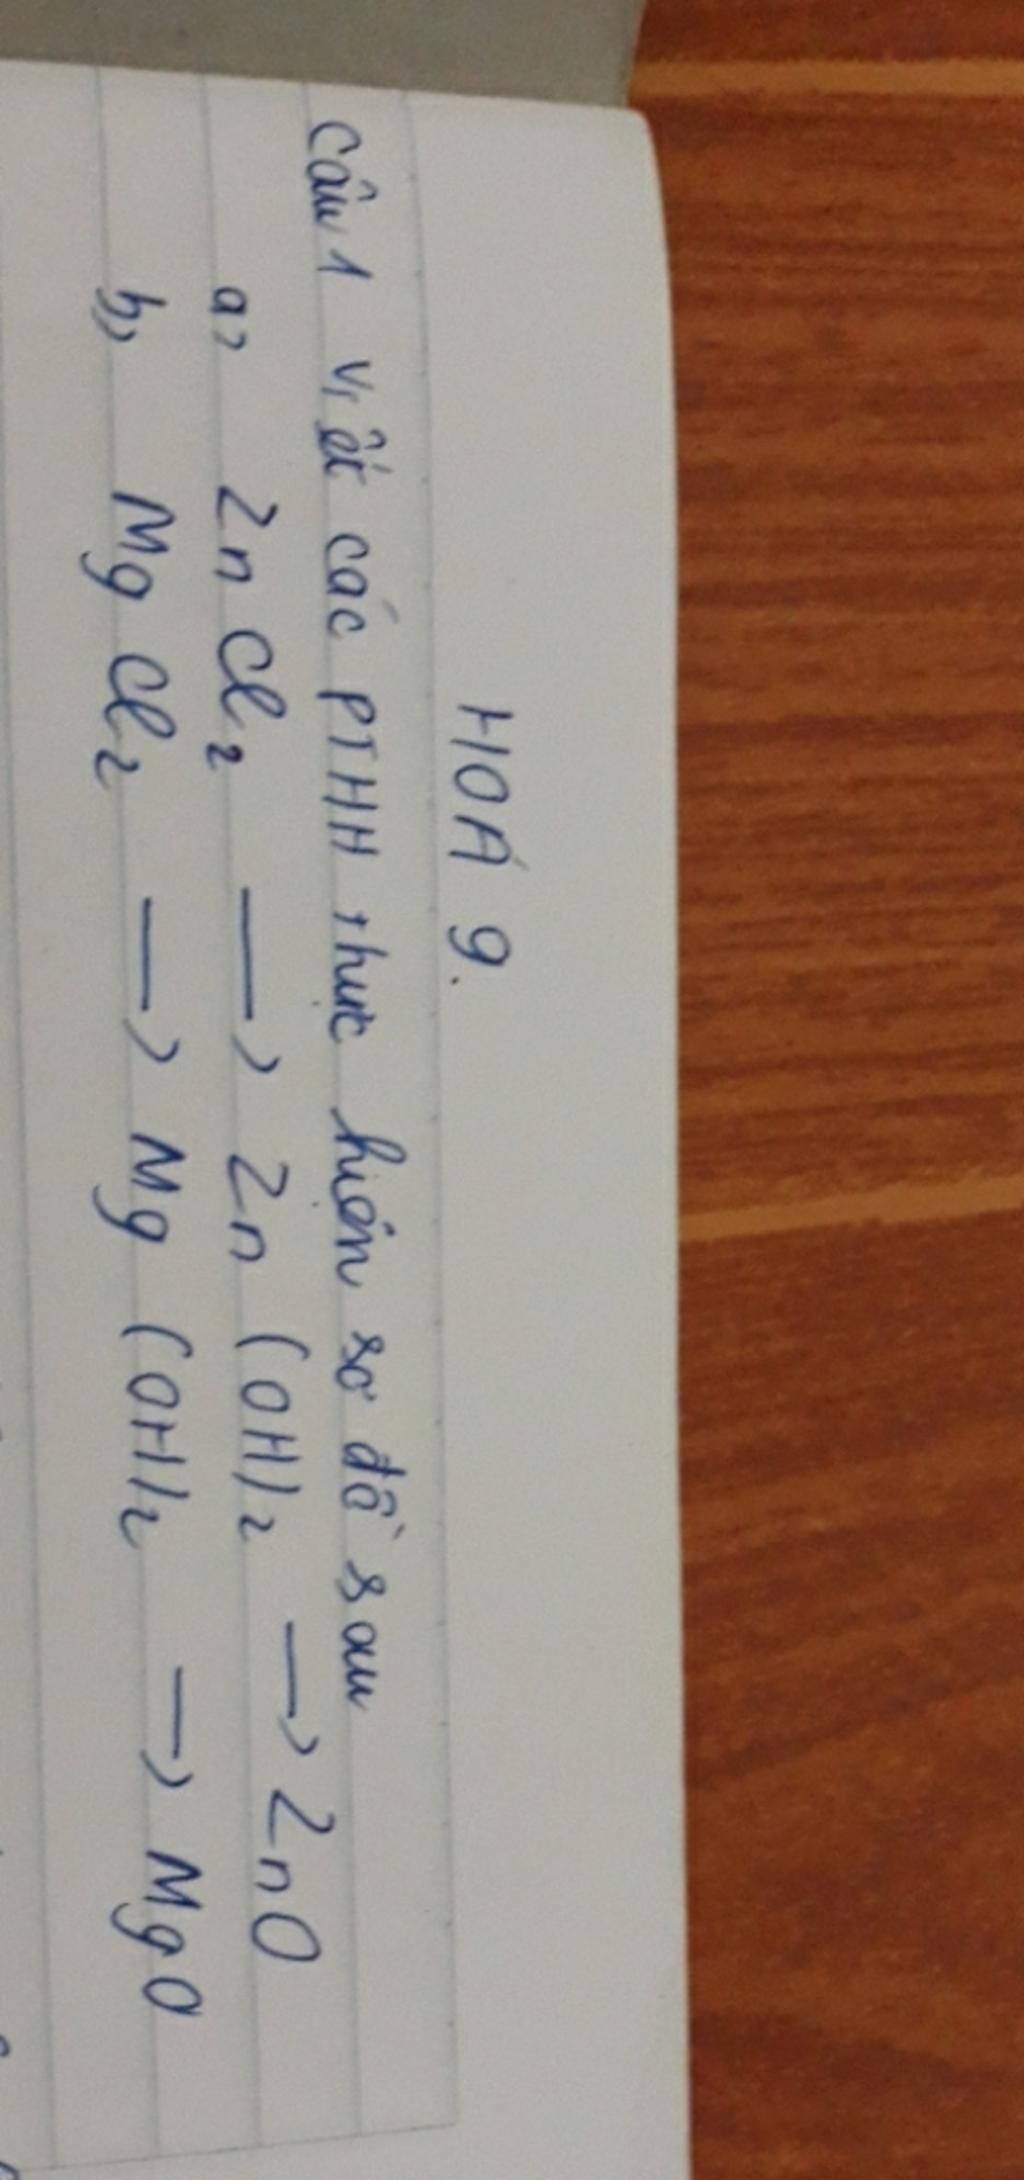 HOÁ 9.
Câu 1 Viết các PTHH thực hiện sơ đồ sau
a, ZnCl₂ → Zn(OH)₂ → ZnO
b, MgCl₂ → Mg(OH)₂ → MgO